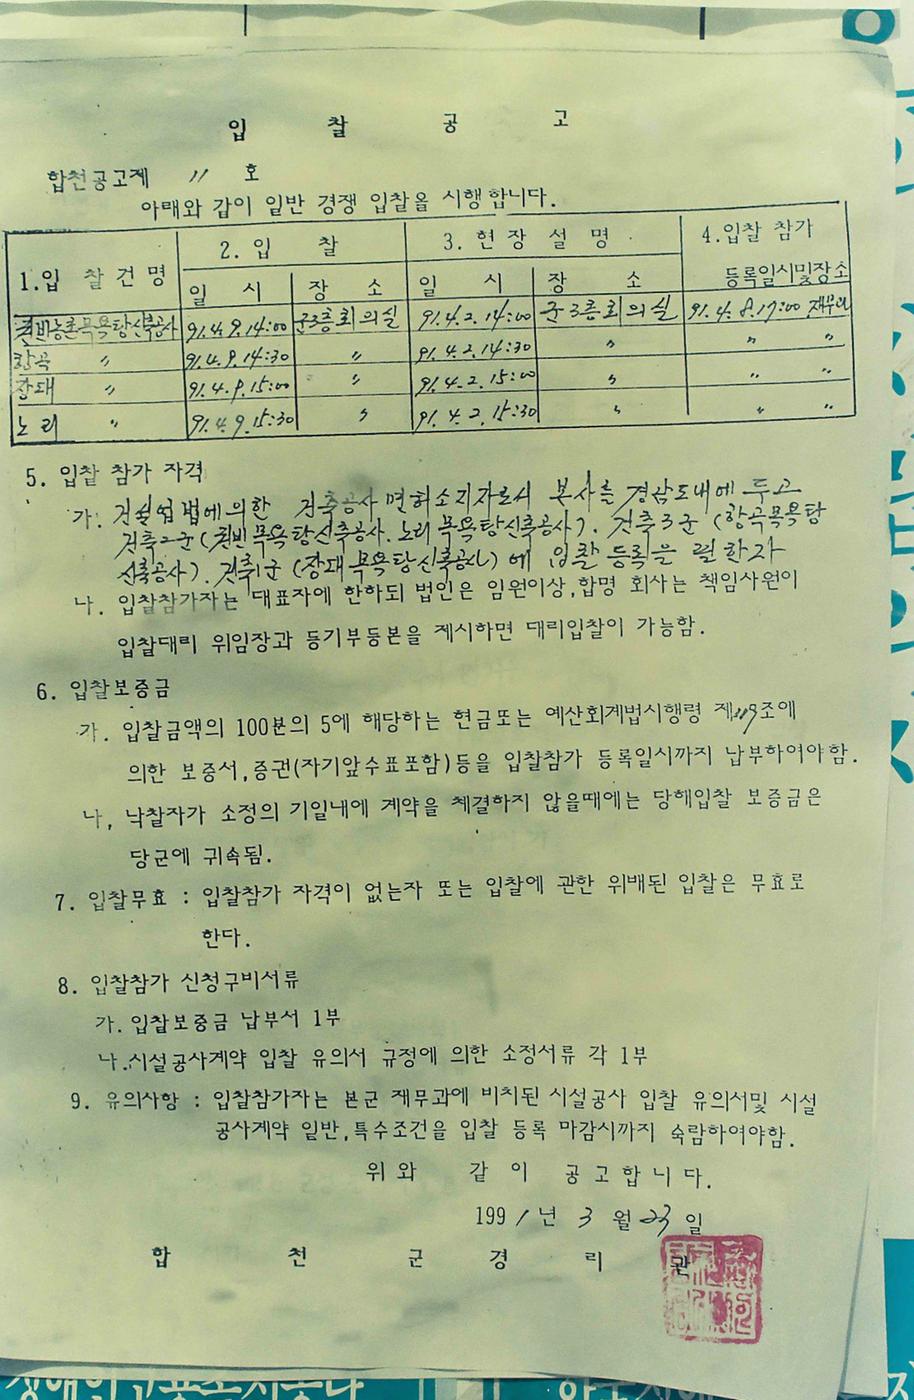 입 찰 공 고
합천공고제 11 호
아래와 같이 일반 경쟁 입찰을 시행합니다.
1.입 찰건명 2.입 찰 3.현장설명 4.입찰 참가
일 시 장 소 일 시 장 소 등록일시및장소
농촌목욕탕신축공사 91.4.9.14:00 군3층회의실 91.4.2.14:00 군3층회의실 91.4.8.17:00 재무과
항곡 〃 91.4.9.14:30 〃 91.4.2.14:30 〃 〃 〃
장대 〃 91.4.9.15:00 〃 91.4.2.15:00 〃 〃 〃
노리 〃 91.4.9.15:30 〃 91.4.2.15:30 〃 〃 〃
5. 입찰 참가 자격
가. 건설업법에의한 건축공사 면허소지자로서 본사를 경남도내에 두고
건축2군( 목욕탕신축공사. 노리목욕탕신축공사). 건축3군 (항곡목욕탕
신축공사). 건축1군 (장대목욕탕신축공사)에 입찰등록을 필한자
나. 입찰참가자는 대표자에 한하되 법인은 임원이상,합명 회사는 책임사원이
입찰대리 위임장과 등기부등본을 제시하면 대리입찰이 가능함.
6. 입찰보증금
가. 입찰금액의 100분의 5에 해당하는 현금또는 예산회계법시행령 제119조에
의한 보증서,증권(자기앞수표포함)등을 입찰참가 등록일시까지 납부하여야함.
나, 낙찰자가 소정의 기일내에 계약을 체결하지 않을때에는 당해입찰 보증금은
당군에 귀속됨.
7. 입찰무효 : 입찰참가 자격이 없는자 또는 입찰에 관한 위배된 입찰은 무효로
한다.
8. 입찰참가 신청구비서류
가. 입찰보증금 납부서 1부
나.시설공사계약 입찰 유의서 규정에 의한 소정서류 각 1부
9. 유의사항 : 입찰참가자는 본군 재무과에 비치된 시설공사 입찰 유의서및 시설
공사계약 일반,특수조건을 입찰 등록 마감시까지 숙람하여야함.
위와 같이 공고합니다.
1991년 3월 23일
합 천 군 경 리 관